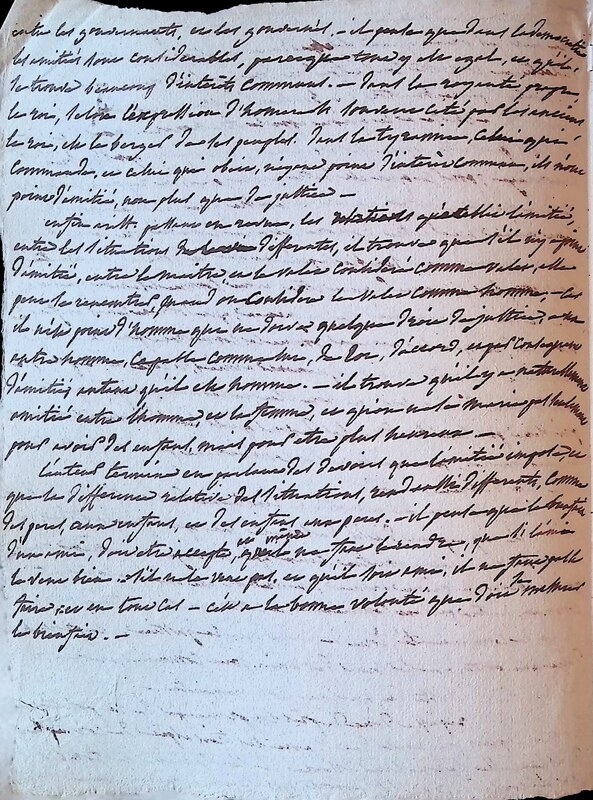 entre les gouvernants, et les gouvernés. - il pense que dans la democratie
les amitiés sont considerables, parceque tout y est egal, et qu'il
se trouve beaucoup d'interets communs. - dans la royauté propre
le roi, selon l'expression d'homere si souvent cité par les anciens
le roi, est le berger de ses peuples. dans la tyrannie, celui qui
commande, et celui qui obéit, n'ayant point d'interet commun, ils n'ont
point d'amitié, non plus que de justice -
enfin passant en revue, les relations qu'etablit l'amitié,
entre les situations differentes, il trouve que s'il n'y a point
d'amitié, entre le maitre, et le valet consideré comme valet, elle
peut se rencontrer, quand on considere le valet comme homme, - car
il n'est point d'homme qui ne doive quelque droit de justice, a un
autre homme, capable comme lui, de loi, d'accord, et par consequent
d'amitié autant qu'il est homme. - il trouve qu'il y a naturellement
amitié entre l'homme, et la femme, et qu'on ne se marie pas seulement
pour avoir des enfants, mais pour etre plus heureux -
l'auteur termine en parlant des devoirs que l'amitié impose et
que la difference relative des situations, rend differents, comme
des peres, aux enfants, et des enfants aux peres. - il pense que le bienfait
d'un ami, doit etre accepté, et même qu'il ne faut le rendre, que si l'ami
le veut bien. s'il ne le veut pas, et qu'il soit ami, il ne faut pas le
faire, et en tout cas - c'est a la bonne volonté que doit se mesurer
le bienfait. -